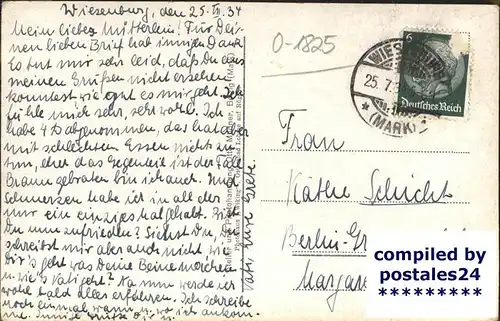 Wiesenburg, den 25. VII. 34
Mein liebes Mütterlein! Für Dei-
nen lieben Brief hab innigen Dank.
Es tut mir sehr leid, daß Du aus
meinen Grüßen nicht ersehen
konntest wie es mir geht. Ich
fühle mich sehr, sehr wohl. Ich
habe 4 ℔ abgenommen, das hat aber
mit schlechtem Essen nicht zu
tun, eher das Gegenteil ist der Fall.
Braun gebraten bin ich auch. Und
Schmerzen habe ich in all der
nur ein einziges hal gehabt. Bist
Du nun zufrieden? Siehst Du, Du
schreibst mir aber auch nicht wie
Dir's geht was Deine Beine machen
u. wie's Vati geht? Na nun werde ich
wohl bald alles erfahren. Ich schreibe
noch einmal wann u. wo ich ankom-
me.
Vati Eure Grete.
O-1825
WIESENBURG
25.7.
(MARK)
6
Deutsches Reich
Frau
Käthe Schicht
Berlin-
compiled by
postales24
*********